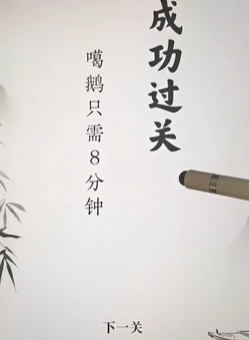 成功过关
噶鹅只需8分钟
下一关